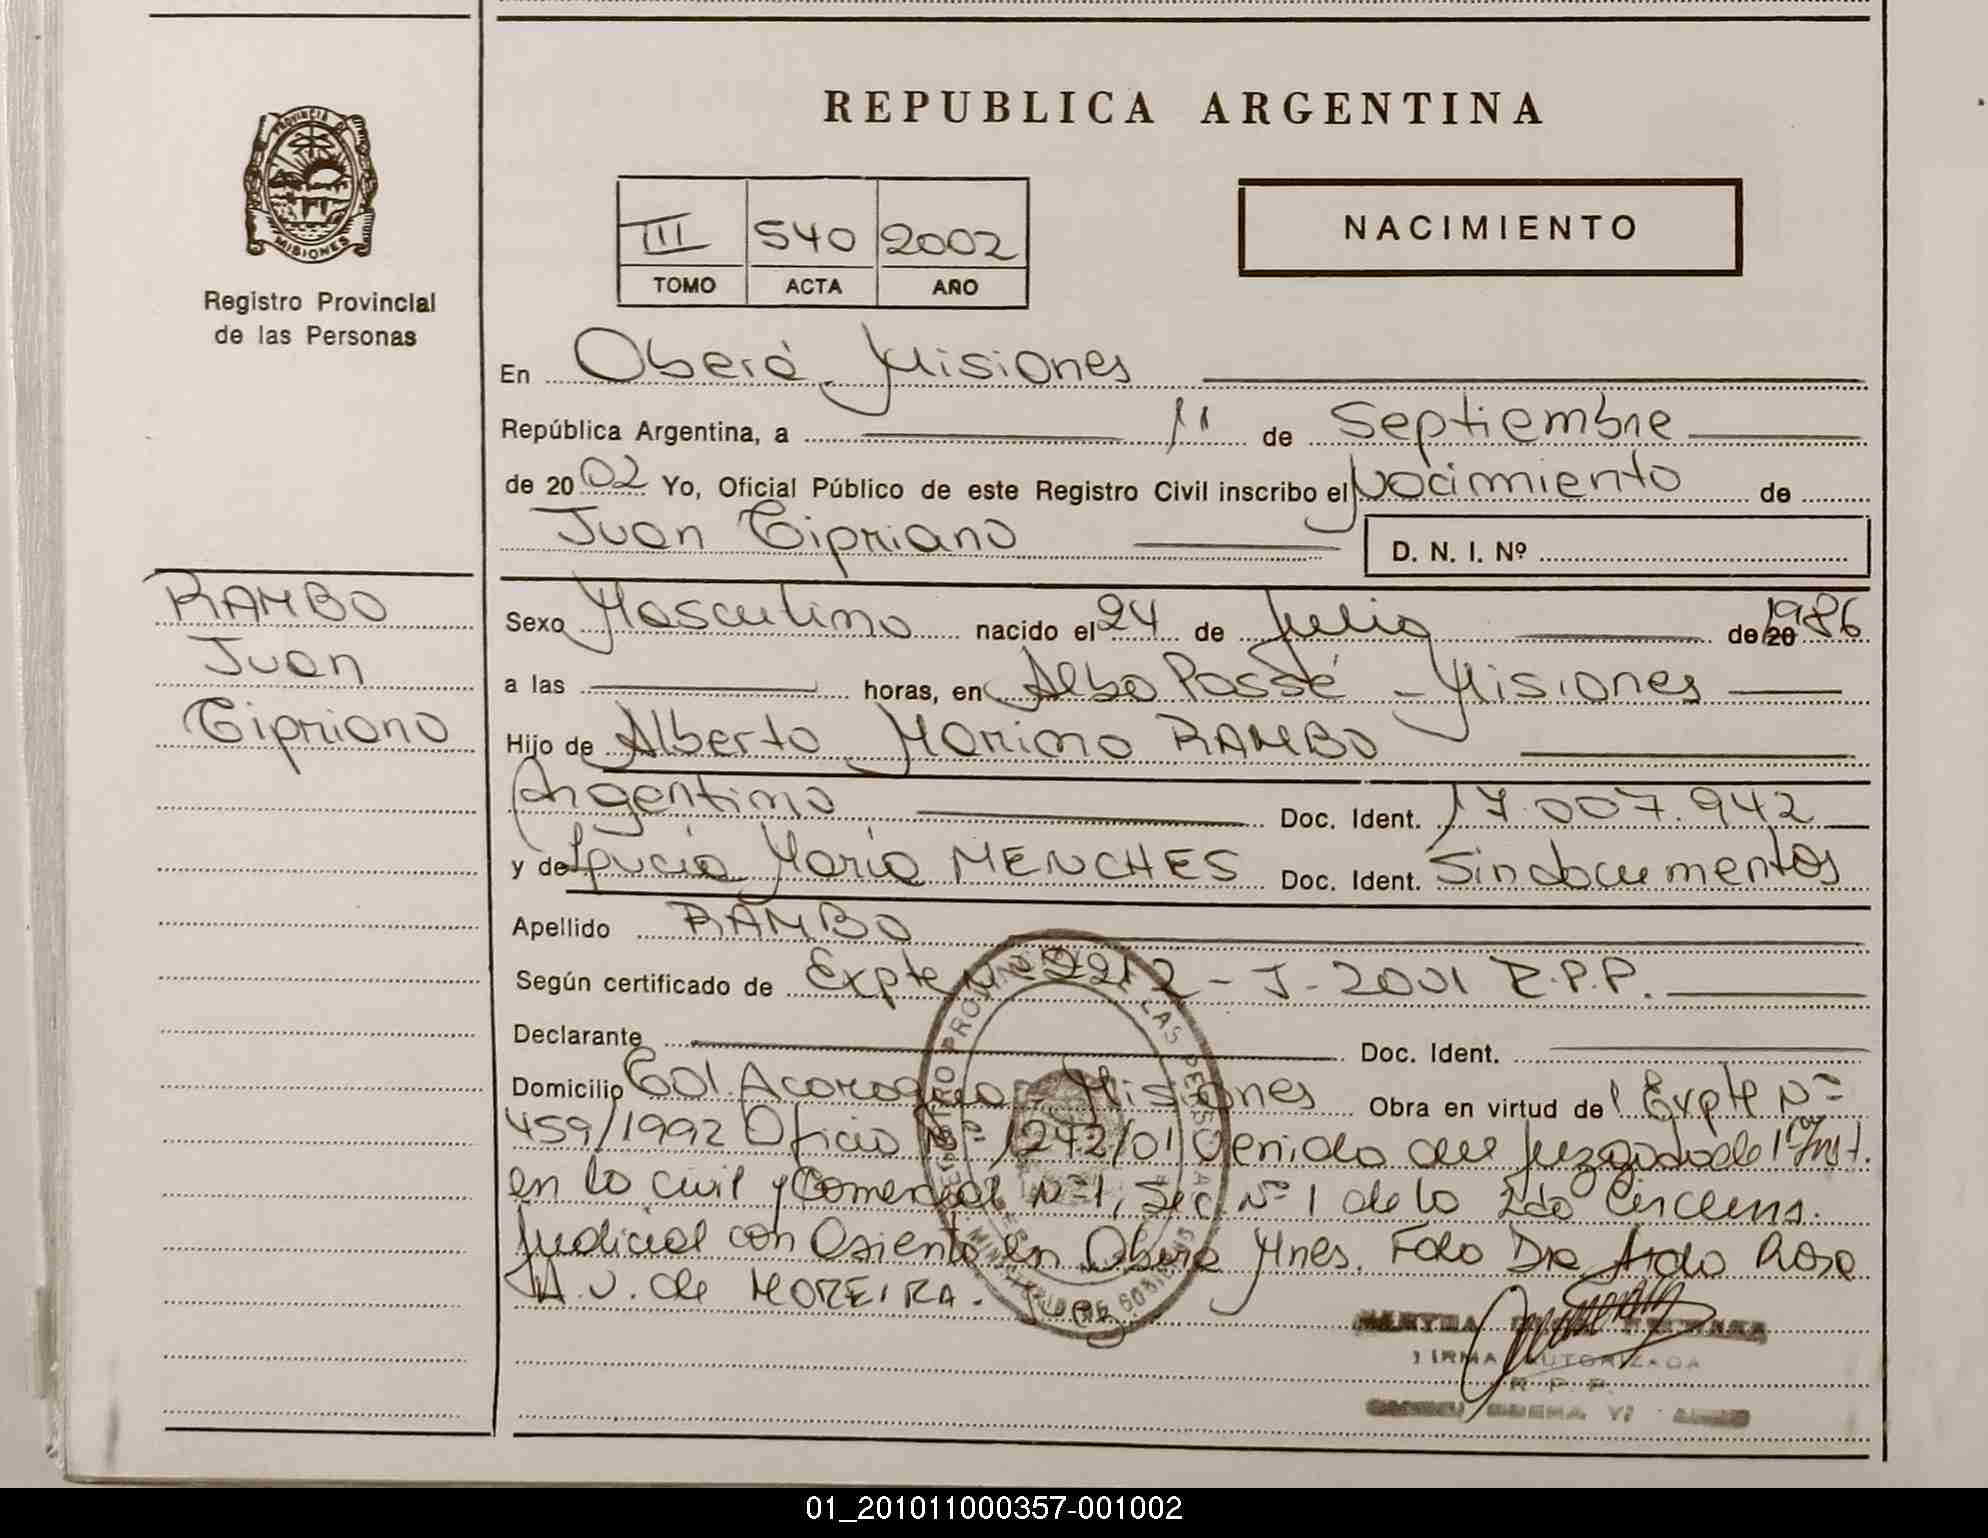 REPUBLICA ARGENTINA
PROVINCIA DE
MISIONES
Registro Provincial
de las Personas
III 540 2002
TOMO ACTA AÑO
NACIMIENTO
En Oberá Misiones
República Argentina, a 11 de Septiembre
de 2002 Yo, Oficial Público de este Registro Civil inscribo el Nacimiento de
Juan Cipriano D. N. I. Nº
RAMBO
Juan
Cipriano
Sexo Masculino nacido el 24 de Julio de 20 1986
a las horas, en Albo Possé - Misiones
Hijo de Alberto Marino RAMBO
Argentino Doc. Ident. 17.007.942
y de Lucia Maria MENCHES Doc. Ident. Sin documentos
Apellido RAMBO
Según certificado de Expte Nº 2212 - J - 2001 R.P.P.
Declarante Doc. Ident.
Domicilio Col. Acaragua - Misiones Obra en virtud del Expte Nº
459/1992 Oficio Nº 1242/01 Venido del Juzgado de 1ra Inst.
en lo civil y Comercial Nº 1, Sec. Nº 1 de la 2da Circuns.
Judicial con Asiento en Oberá Mnes. Fdo Dra Aida Rosa
A. V. de MOREIRA. Juez
FIRMA AUTORIZADA
R. P. P.
01_201011000357-001002